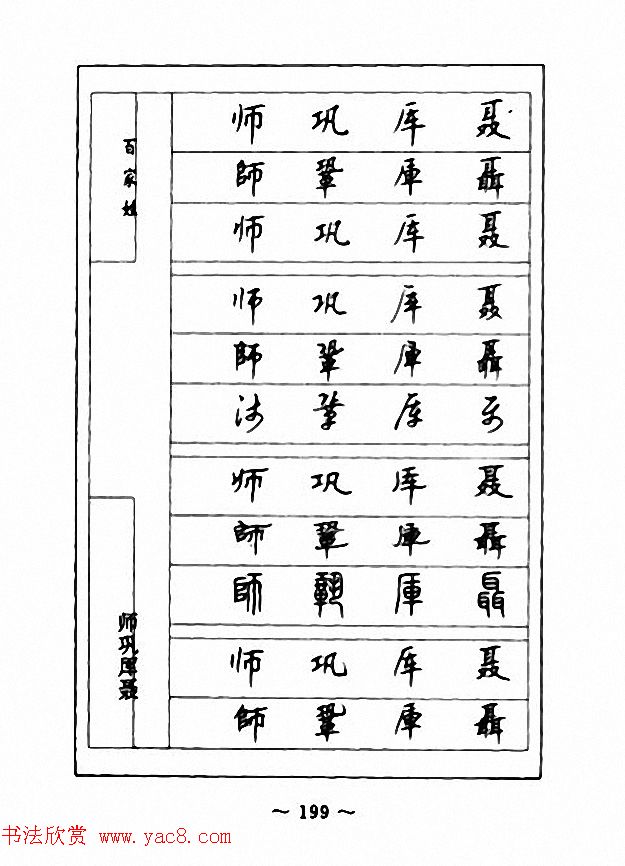 百家姓
师巩厍聂
师 巩 厍 聂
師 鞏 厙 聶
师 巩 厍 聂
师 巩 厍 聂
師 鞏 厙 聶
师 巩 厍 聂
师 巩 厍 聂
師 鞏 厙 聶
師 鞏 厙 聶
师 巩 厍 聂
師 鞏 厙 聶
~ 199 ~
书法欣赏 www.yac8.com